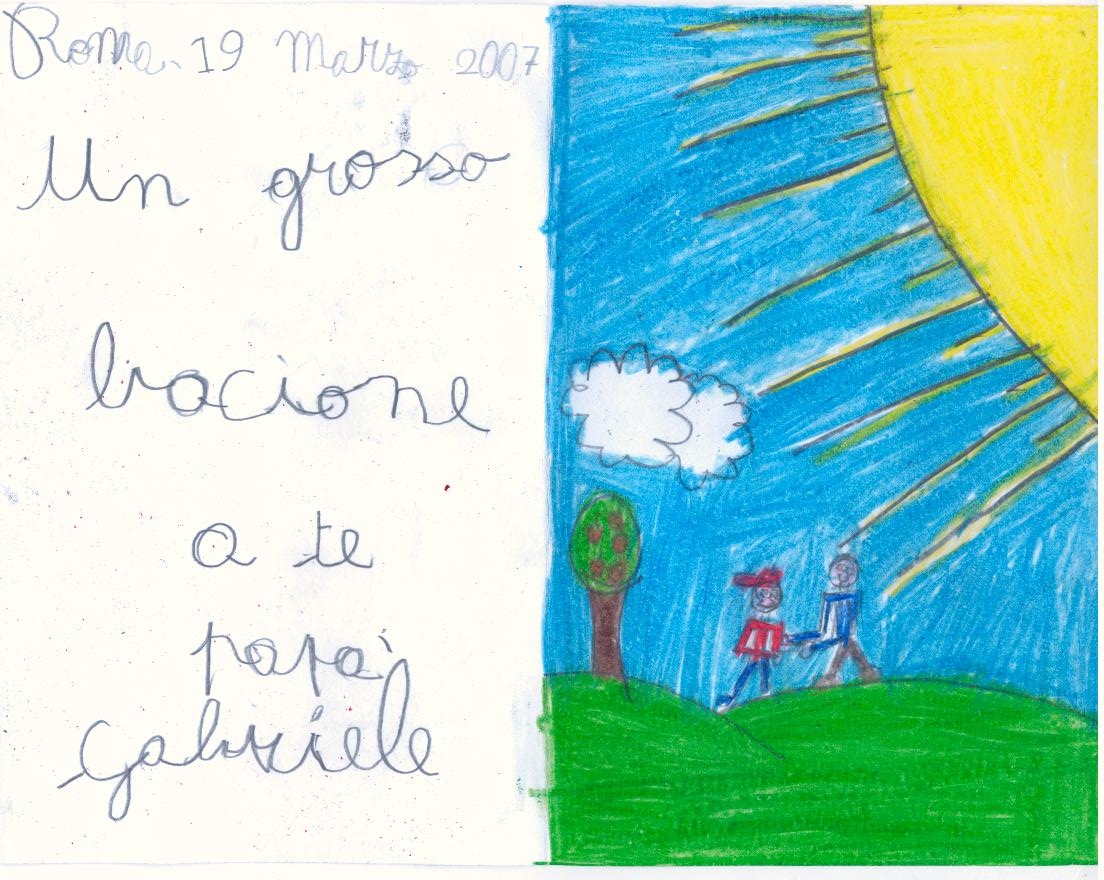 Roma, 19 Marzo 2007
Un grosso
bacione
a te
papà
Gabriele